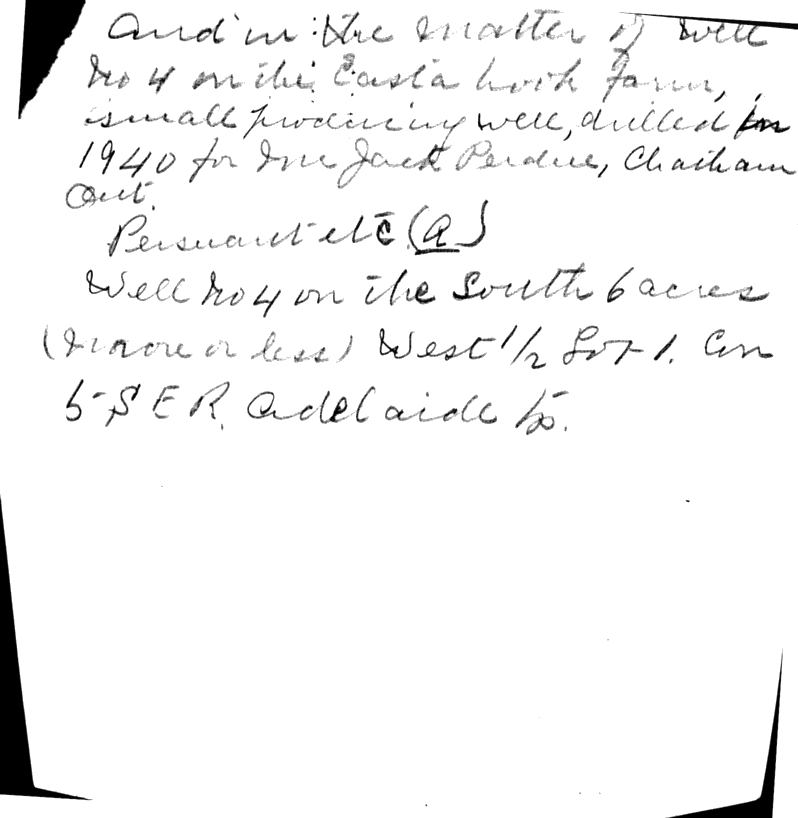 And in the matter of Well
No 4 on the Casta hook Farm,
small producing well, drilled in
1940 for Mr Jack Perdue, Chatham
Ont.
Persuant etc (a)
Well No 4 on the South 6 acres
(more or less) West 1/2 Lot 1. Con
5 S E R. Adelaide Tp.